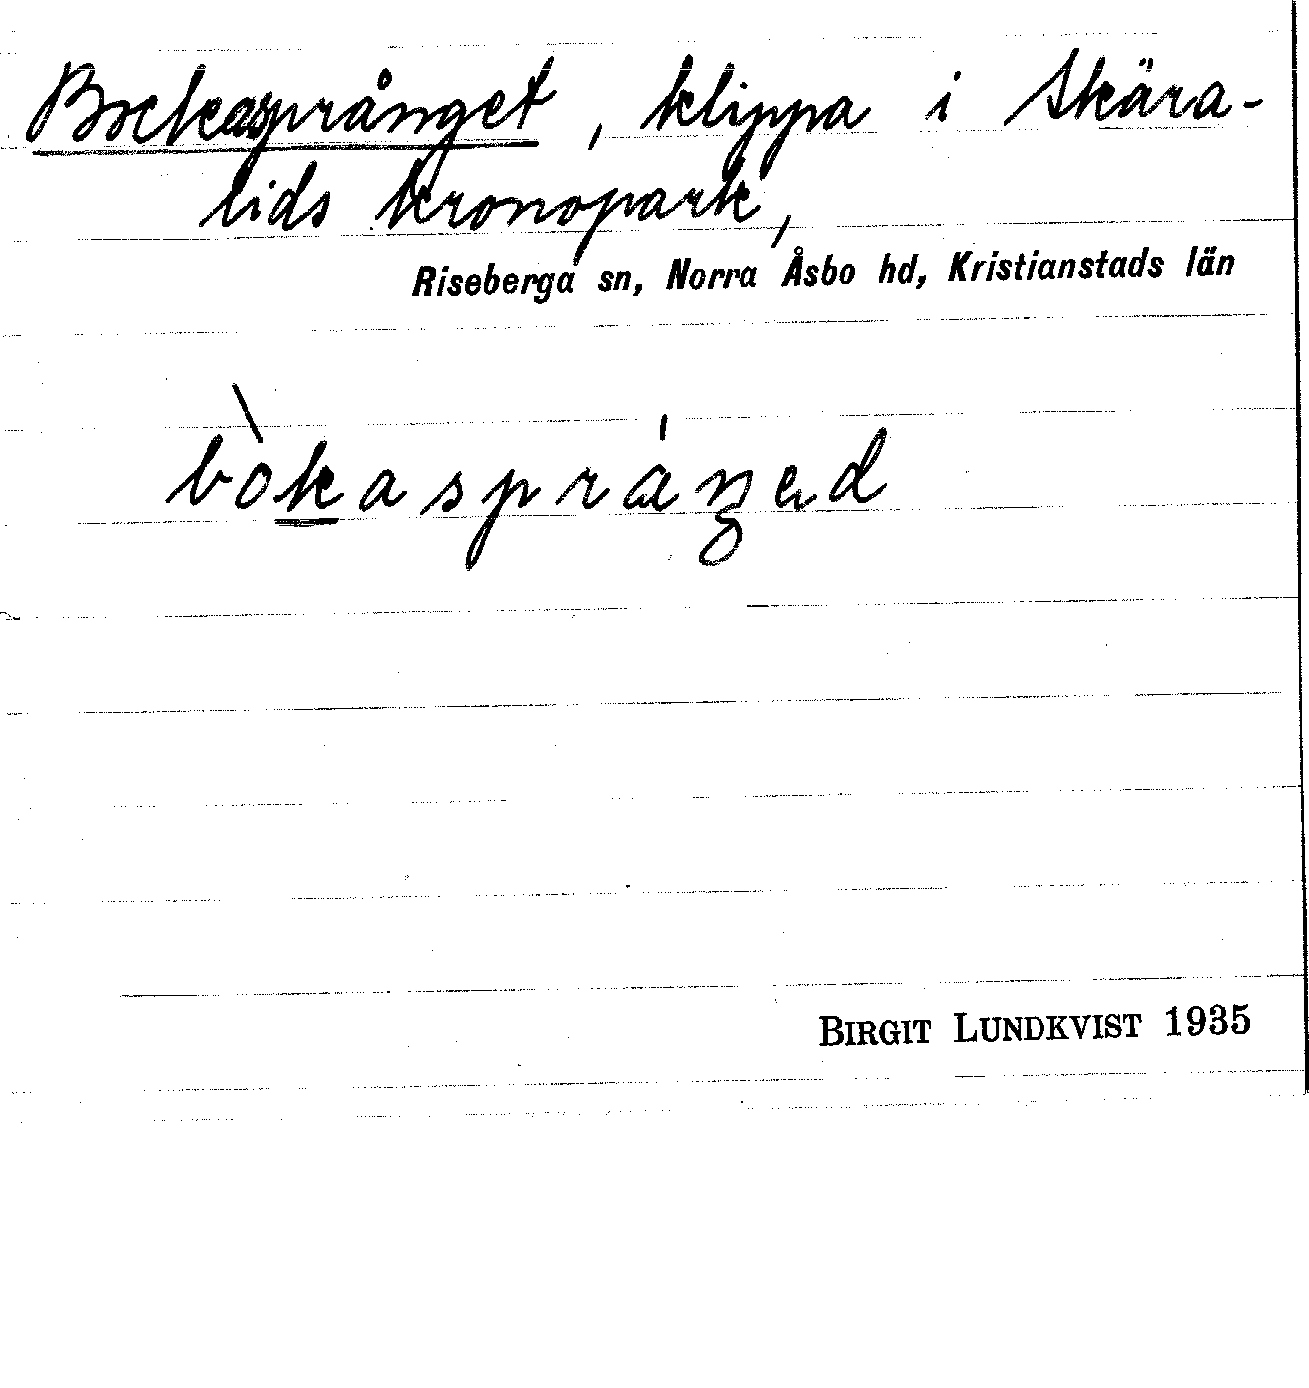 Bockasprånget, klippa i Skära-
lids kronopark,
Riseberga sn, Norra Åsbo hd, Kristianstads län
bòkaspráŋəd
BIRGIT LUNDKVIST 1935